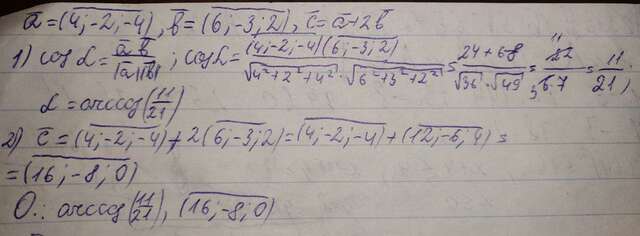 a̅ = (4;-2;-4), b̅ = (6;-3;2), c̅ = a̅+2b̅
1) cos L = a̅b̅/|a̅||b̅| ; cos L = (4;-2;-4)(6;-3;2)/√(4²+2²+4²)·√(6²+3²+2²) = 24+6-8/√36·√49 = 22/6·7 = 11/21;
L = arccos(11/21)
2) c̅ = (4;-2;-4)+2(6;-3;2) = (4;-2;-4)+(12;-6;4) =
= (16;-8;0)
O.: arccos(11/21), (16;-8;0)